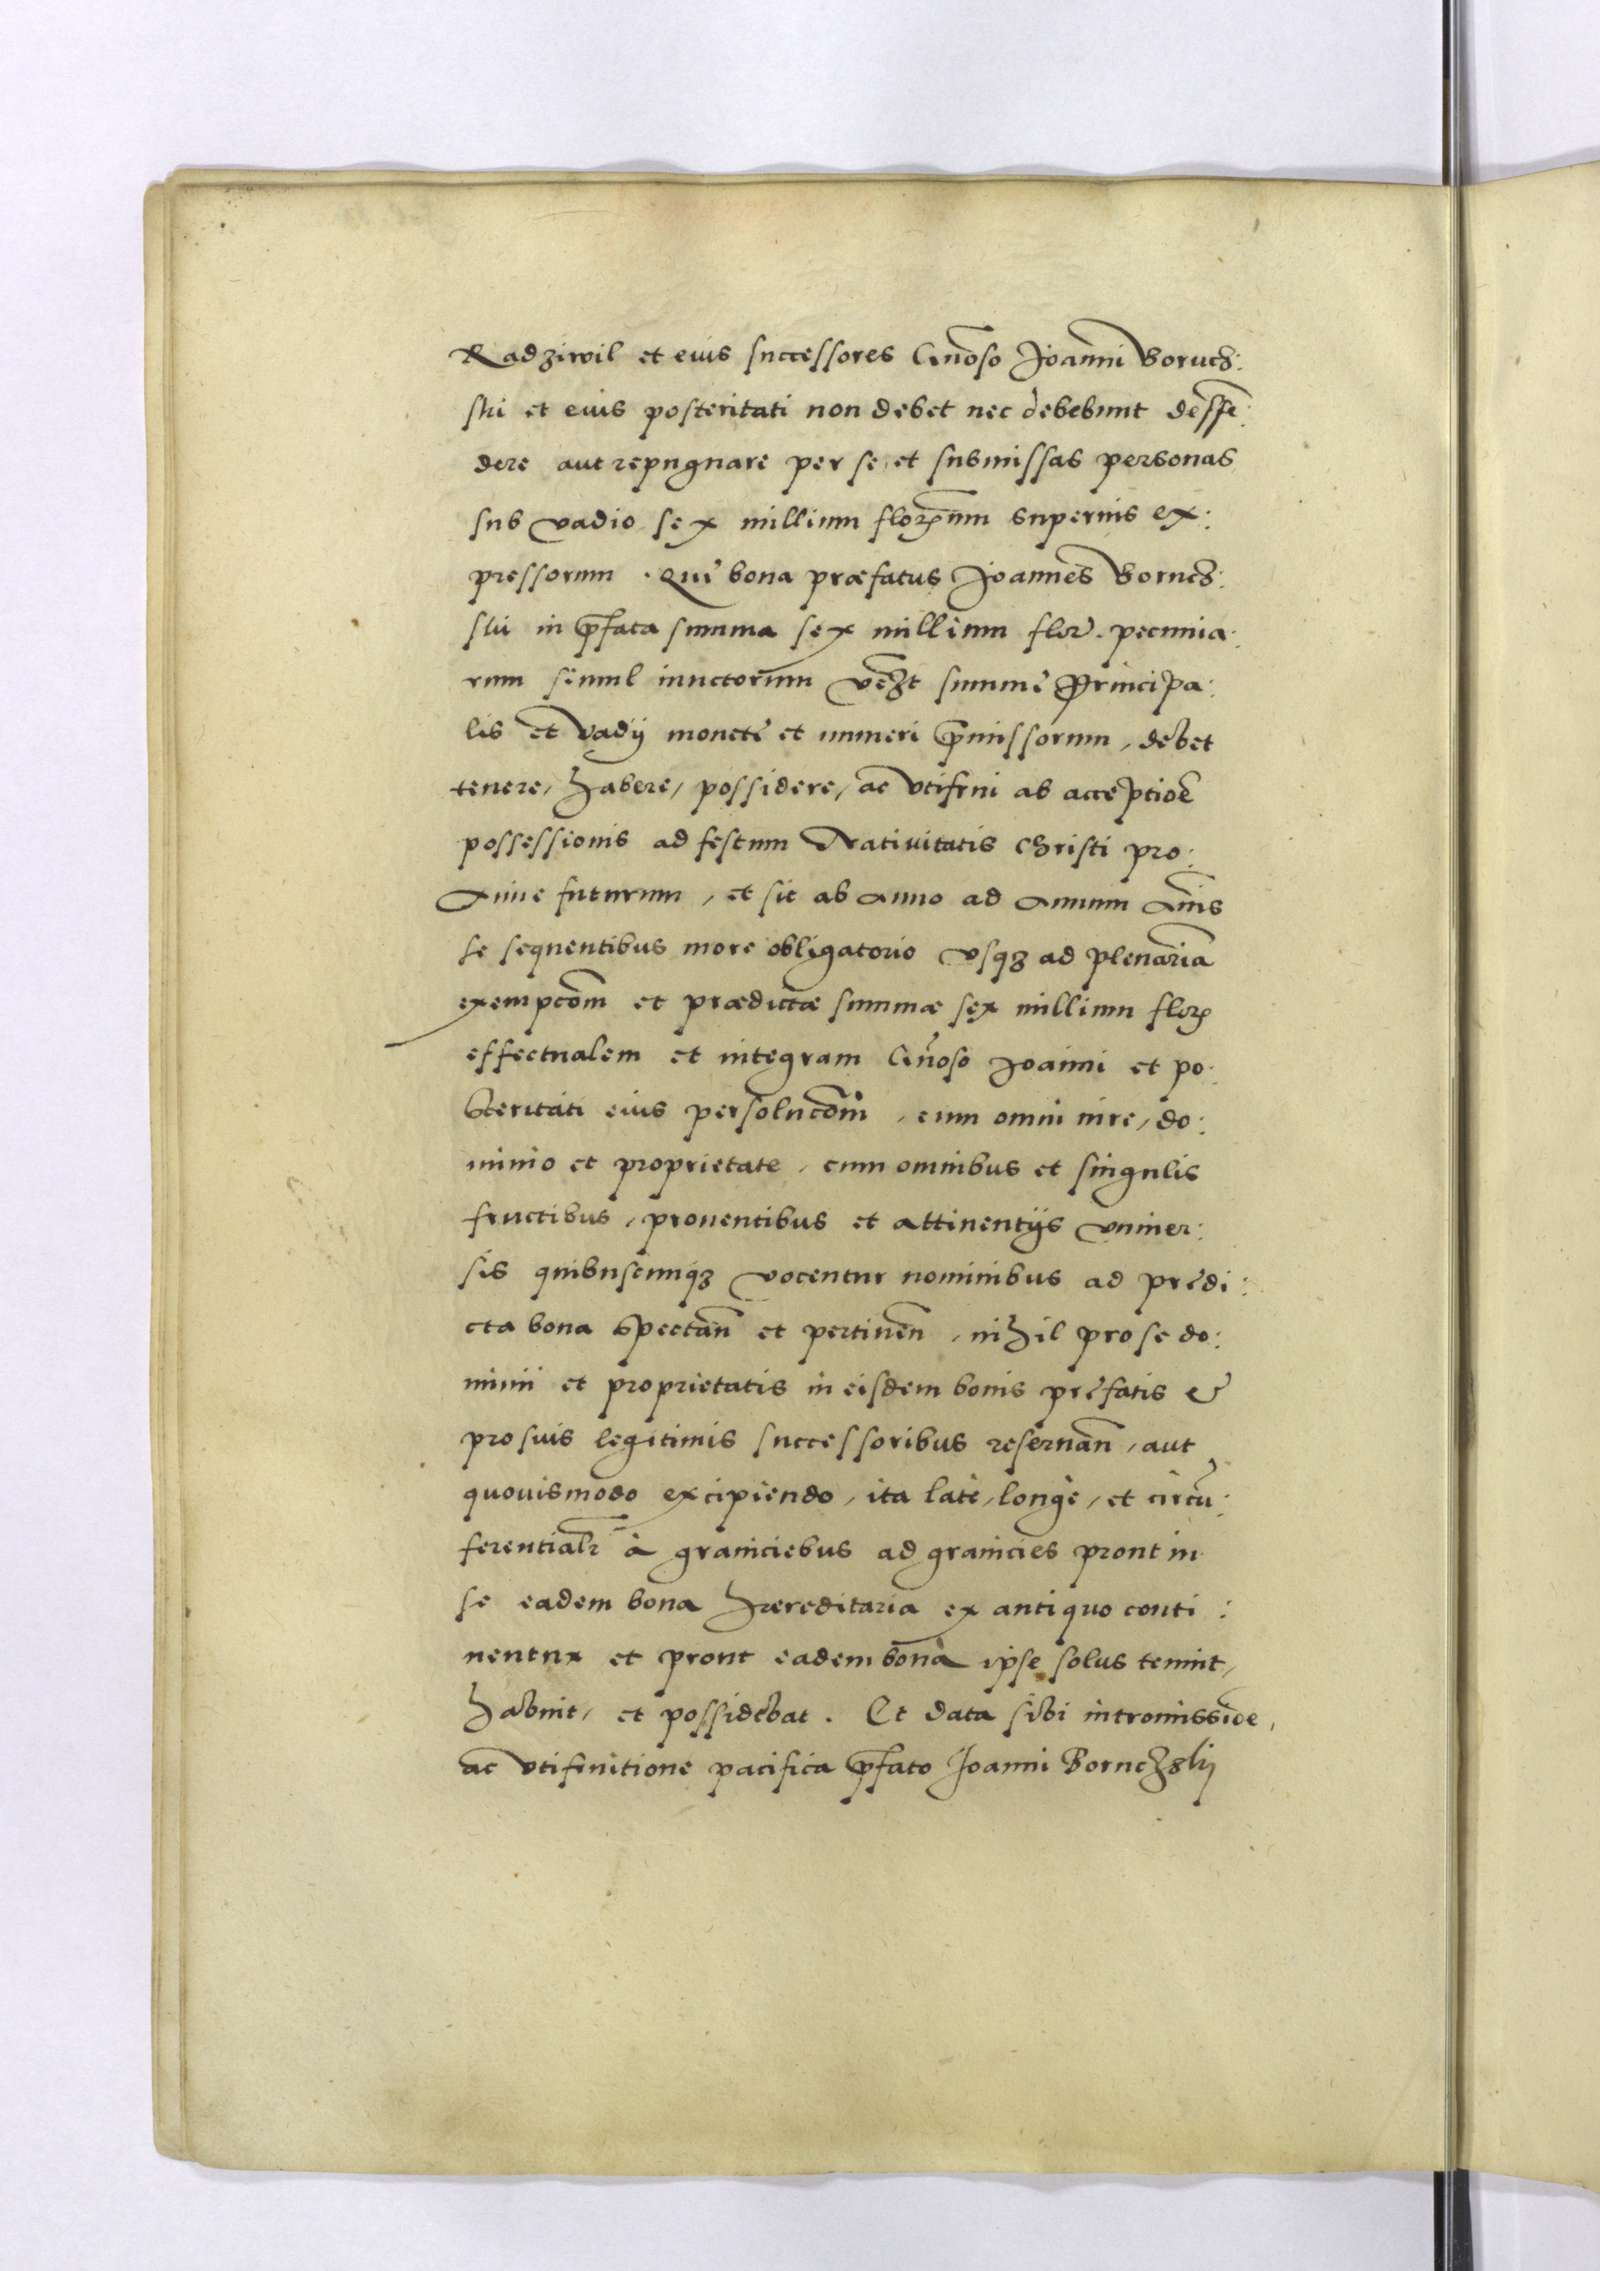 Radziwil et eius successores Gñoso Joanni Boruch:
ski et eius posteritati non debet nec debebunt deffē:
dere aut repugnare per se et submissas personas
sub vadio sex millium florenum superius ex:
pressorum. Quę bona præfatus Joannes Boruch:
ski in p̄fata summa sex millium flor. pecunia:
rum simul iunctorum summę Principa:
lis et vadÿ monetę et numeri p̄missorum, debet
tenere, habere, possidere, ac vtifrui ab acceptiōe
possessionis ad festum Natiuitatis Christi pro:
xime futurum, et sic ab anno ad annum annis
se sequentibus more obligatorio vsqꝫ ad plenariam
exempcōm et prædictæ summæ sex millium flor
effectualem et integram Gñoso Joanni et po:
steritati eius persolucōm, cum omni iure, do:
minio et proprietate, cum omnibus et singulis
fructibus, prouentibus et attinentÿs vniuer:
sis quibuscunqꝫ vocentur nominibus ad prędi:
cta bona spectañ et pertineñ, nihil pro se do:
minii et proprietatis in eisdem bonis pręfatis &
pro suis legitimis successoribus reseruañ, aut
quouismodo excipiendo, ita latè, longè, et circū:
ferentialr à graniciebus ad granicies prout in
se eadem bona hæreditaria ex antiquo conti:
nentur et prout eadem bona ipse solus tenuit,
habuit, et possidebat. Et data sibi intromissiōe,
ac vtifruitione pacifica p̄fato Joanni Boruchskÿ